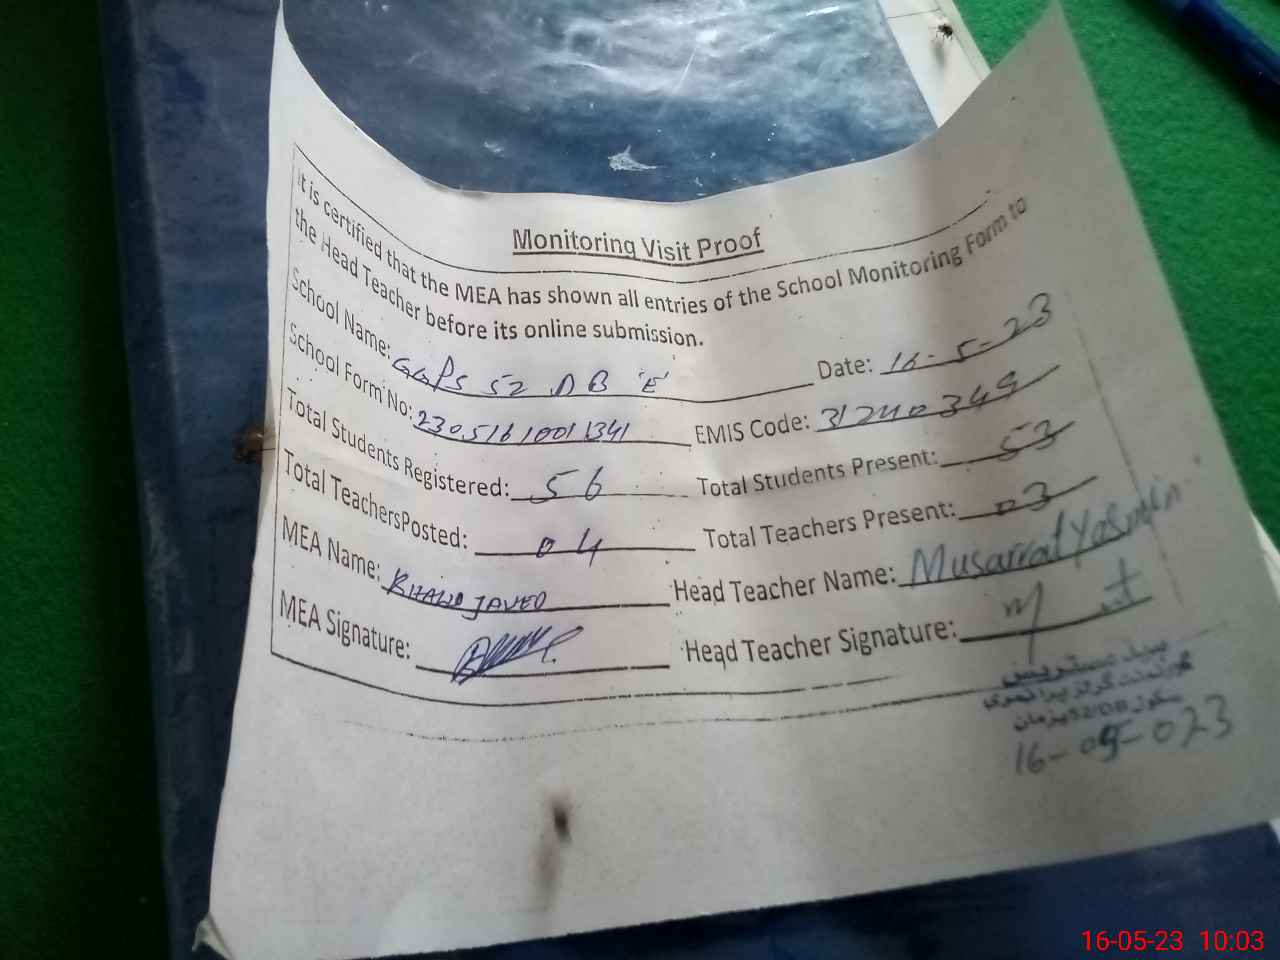 Monitoring Visit Proof
It is certified that the MEA has shown all entries of the School Monitoring Form to
the Head Teacher before its online submission.
School Name: GGPS 52 DB 'E' Date: 16-5-23
School Form No: 2305161001341 EMIS Code: 31240349
Total Students Registered: 56 Total Students Present: 53
Total TeachersPosted: 04 Total Teachers Present: 03
MEA Name: KHALID JAVED Head Teacher Name: Musarrat Yasmin
MEA Signature: Head Teacher Signature:
ہیڈ مسٹریس
گورنمنٹ گرلز پرائمری
سکول 52/DB یزمان
16-05-023
16-05-23 10:03